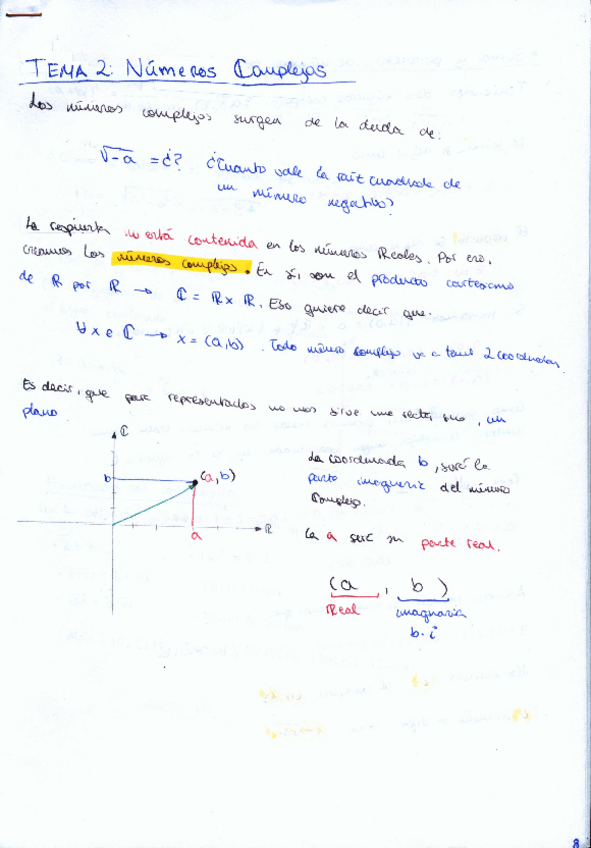 TEMA 2: Números Complejos
Los números complejos surgen de la duda de:
√-a = ¿? ¿Cuanto vale la raíz cuadrada de
un número negativo?
La respuesta no está contenida en los números Reales. Por eso,
creamos los números complejos. En sí, son el producto cartesiano
de ℝ por ℝ → ℂ = ℝ x ℝ. Eso quiere decir que:
∀ x ∈ ℂ → x = (a,b). Todo número complejo va a tener 2 coordenadas.
Es decir, que para representarlos no nos sirve una recta sino, un
plano.
ℂ
b
(a,b)
a
ℝ
La coordenada b, será la
parte imaginaria del número
Complejo.
La a será su parte real.
(a , b)
Real
imaginaria
b·i
8